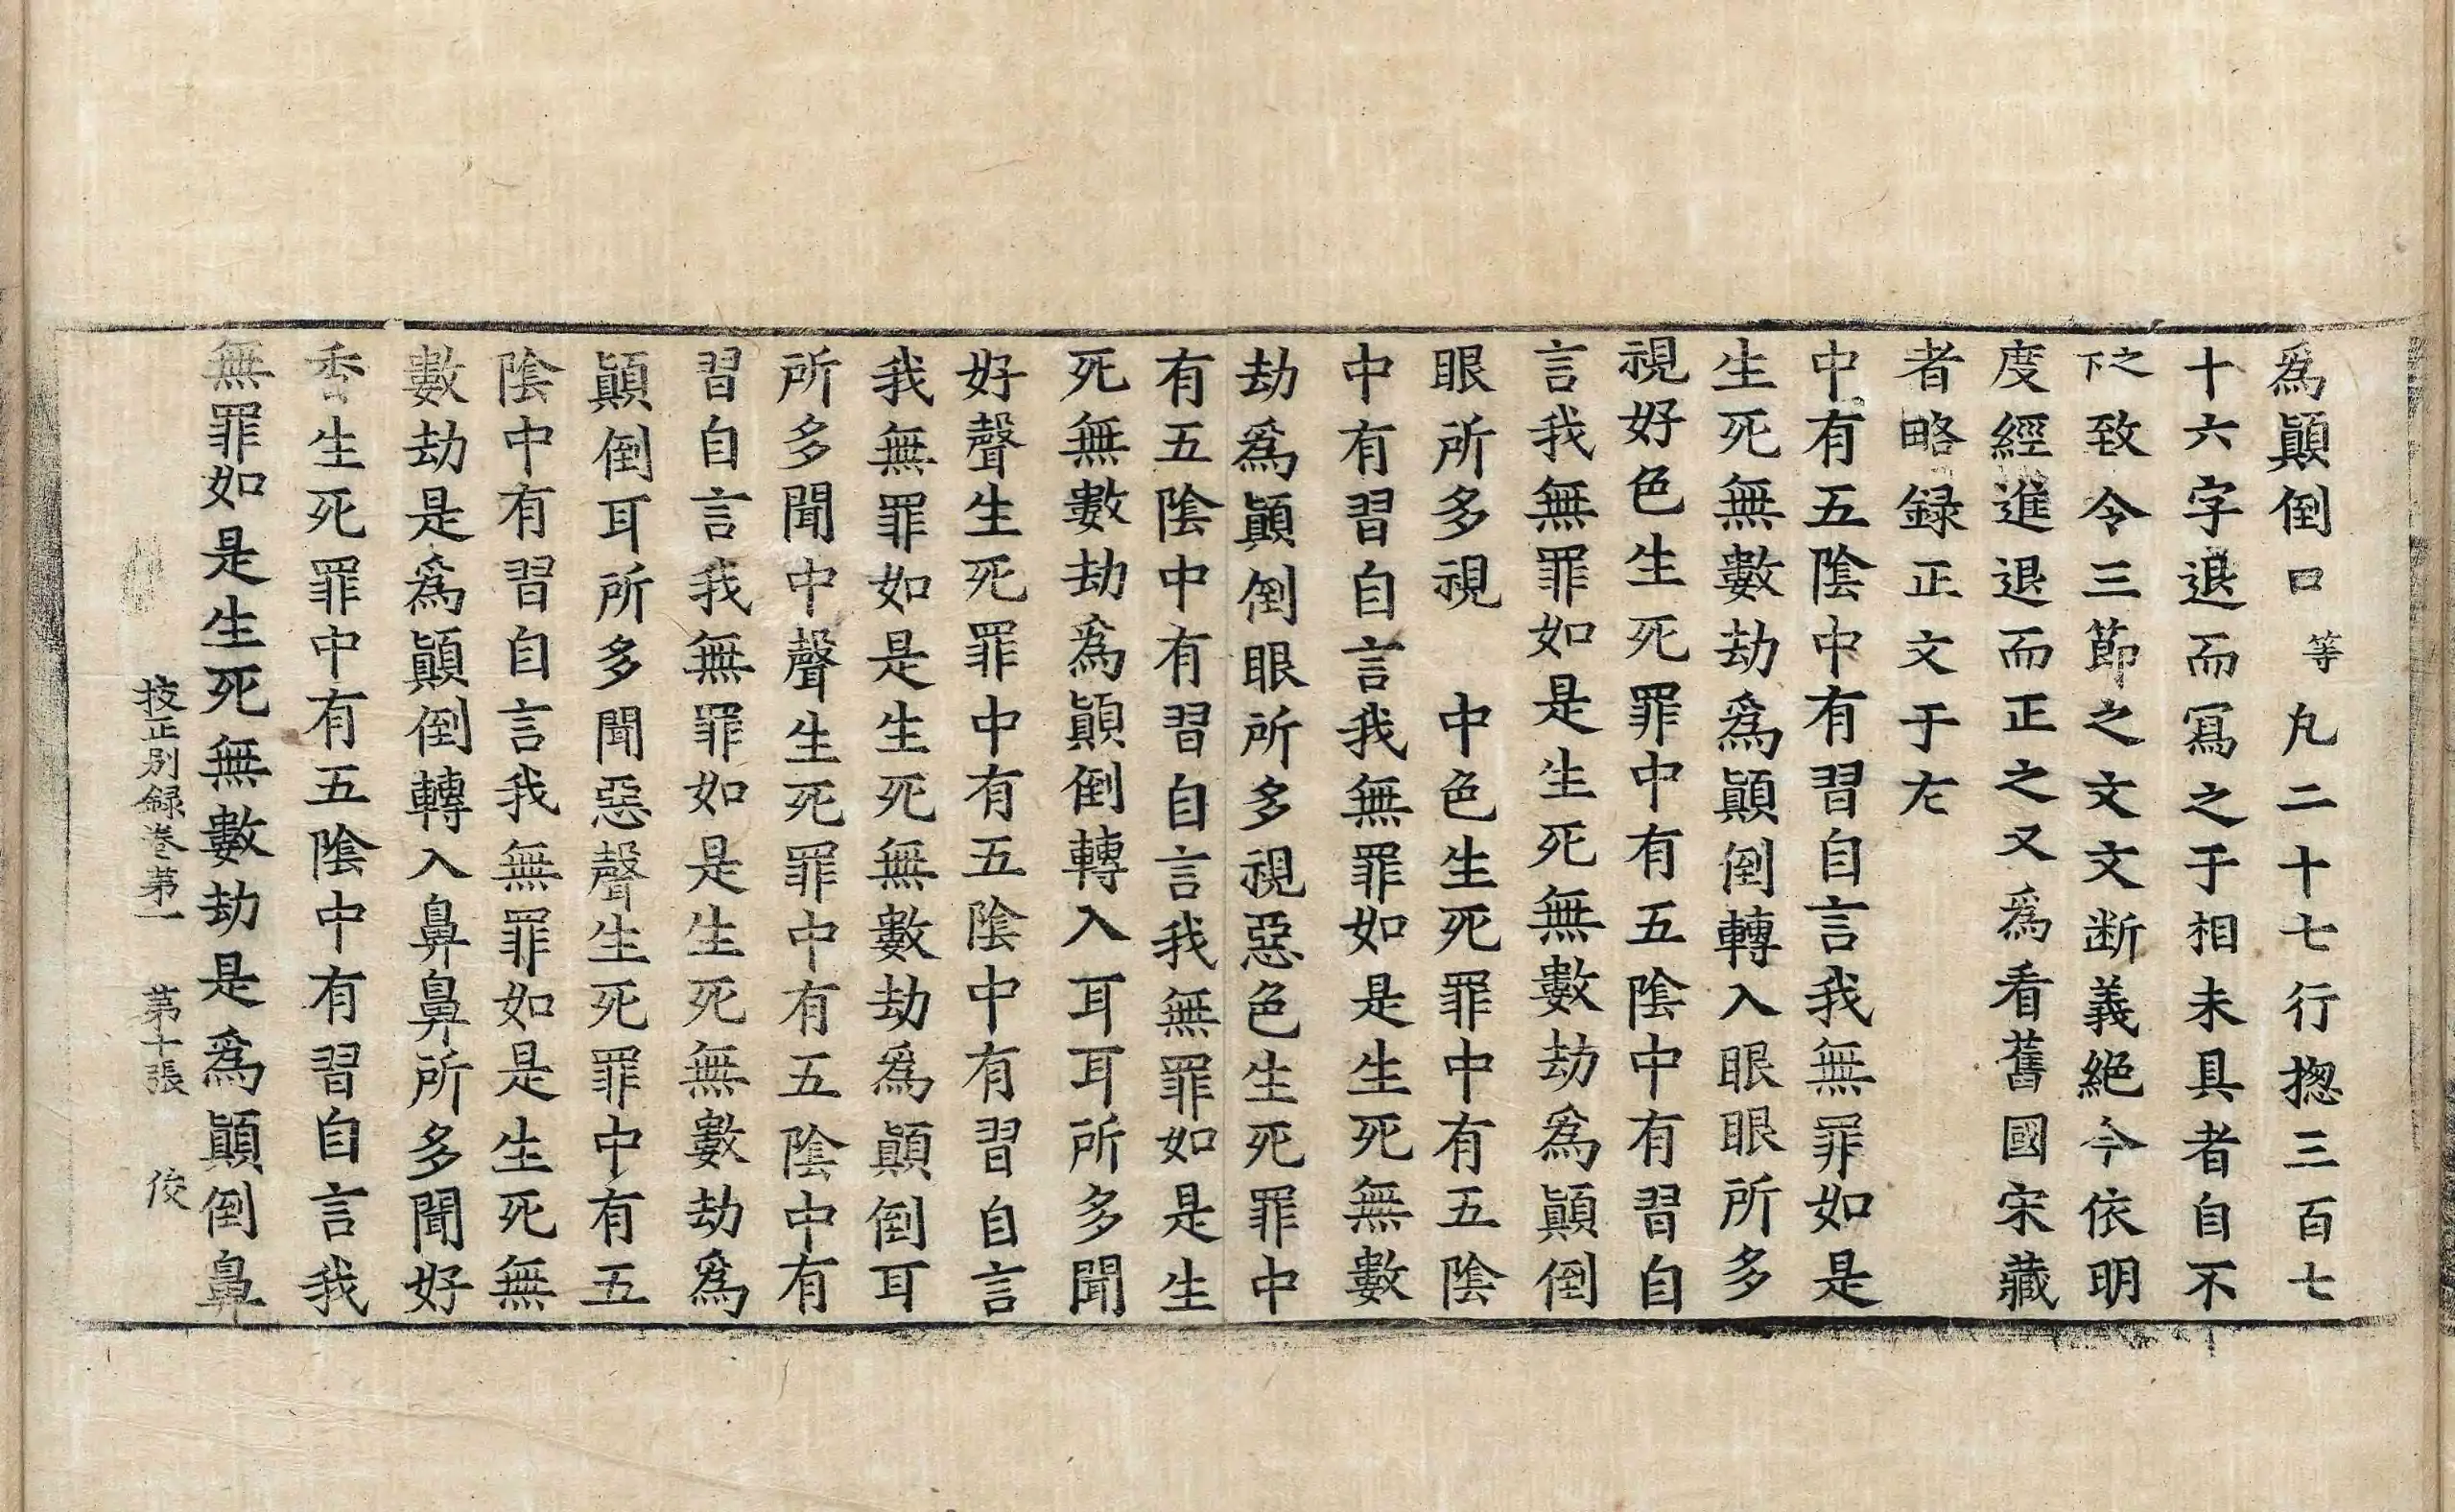 為顚倒口等凡二十七行揔三百七
十六字退而冩之于相未具者自不
之下致令三節之文文断義絶今依明
度經進退而正之又為看舊國宋藏
者略録正文于左
中有五陰中有習自言我無罪如是
生死無數劫為顚倒轉入眼眼所多
視好色生死罪中有五陰中有習自
言我無罪如是生死無數劫為顚倒
眼所多視　中色生死罪中有五陰
中有習自言我無罪如是生死無數
劫為顚倒眼所多視惡色生死罪中
有五陰中有習自言我無罪如是生
死無數劫為顚倒轉入耳耳所多聞
好聲生死罪中有五陰中有習自言
我無罪如是生死無數劫為顚倒耳
所多聞中聲生死罪中有五陰中有
習自言我無罪如是生死無數劫為
顚倒耳所多聞惡聲生死罪中有五
陰中有習自言我無罪如是生死無
數劫是為顚倒轉入鼻鼻所多聞好
香生死罪中有五陰中有習自言我
無罪如是生死無數劫是為顚倒鼻
挍正別録卷苐一　苐十張　俊